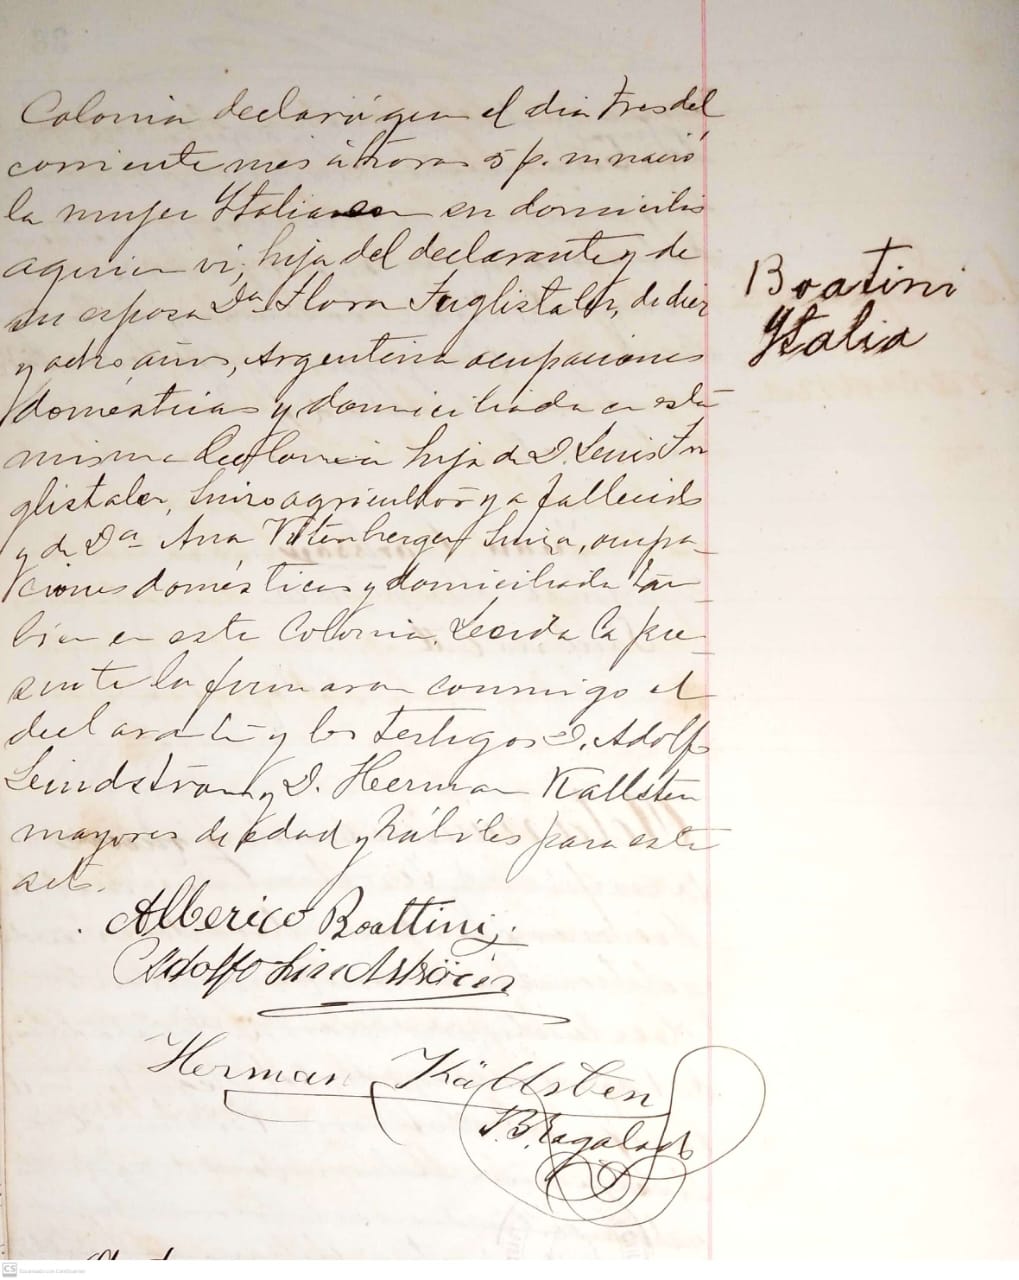 Colonia declaró que el dia tres del
corriente mes á horas 5 p. m nació
la mujer Ytalia en su domicilio
a quien vi, hija del declarante y de
su esposa Da Flora Fuglistaler, de diez
y ocho años, Argentina ocupaciones
domésticas y domiciliada en esta
misma Colonia hija de D. Luis Fu
glistaler, Suizo agricultor ya fallecido
y de Da Ana Vitenberger Suiza, ocupa-
ciones domésticas y domiciliada tam-
bien en esta Colonia. Leida la pre-
sente la firmaron conmigo el
declarante y los testigos D. Adolfo
Leindström y D. Herman Kallsten
mayores de edad y hábiles para este
acto.
Alberico Boattini
Adolfo Lindström
Herman Källsten
Boatini
Ytalia
CS Escaneado con CamScanner